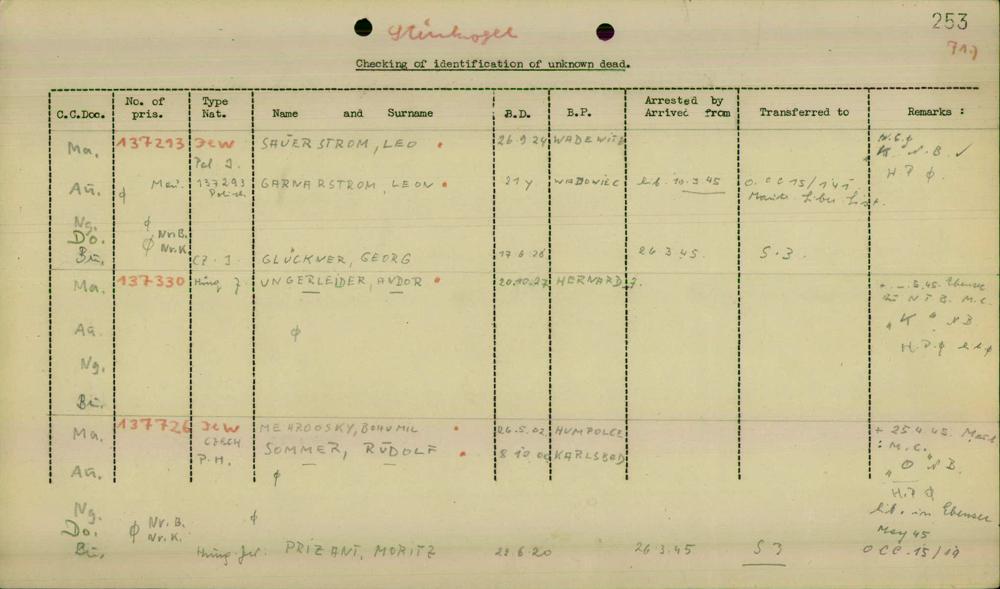 253
Steinkogel
71.)
Checking of identification of unknown dead.
C.C.Doc. No. of pris. Type Nat. Name and Surname B.D. B.P. Arrested by Arrived from Transferred to Remarks :
Ma. 137293 Jew SAUERSTROM, LEO 26.9.24 WADEWITZ
Pol J. "K" N.B. ✓
H P ϕ.
Au. ϕ 137293 GARNARSTROM, LEON 21 y WADOWIEC lib. 10.3.45 O.CC 15/141
Polish Liber List.
Ng. ϕ
Do. ϕ Nr.B.
Nr.K.
Bu. CZ. J. GLÜCKNER, GEORG 17.6.26 26 3.45. S.3.
Ma. 137330 Hung J UNGERLEIDER, ANDOR 20.10.27 HERNARD J. + 5.45. Ebensee
N T B. M.C.
Au. ϕ "K" N B
H.P.ϕ
Ng.
Bu.
Ma. 137726 Jew MEHRDOSKY, BOHUMIL 26.5.02 HUMPOLEC + 25 4.45.
CZECH : M.C.
P.H. SOMMER, RUDOLF 8 10 00 KARLSBAD
Au. ϕ "O" N B.
H.P ϕ
Ng. ϕ lib. in Ebensee
Do. ϕ Nr. B.
Nr. K. May 45
Bu. Hung. Jew. PRIZANT, MORITZ 22 6 20 26 3.45 S 3 O CC. 15/19